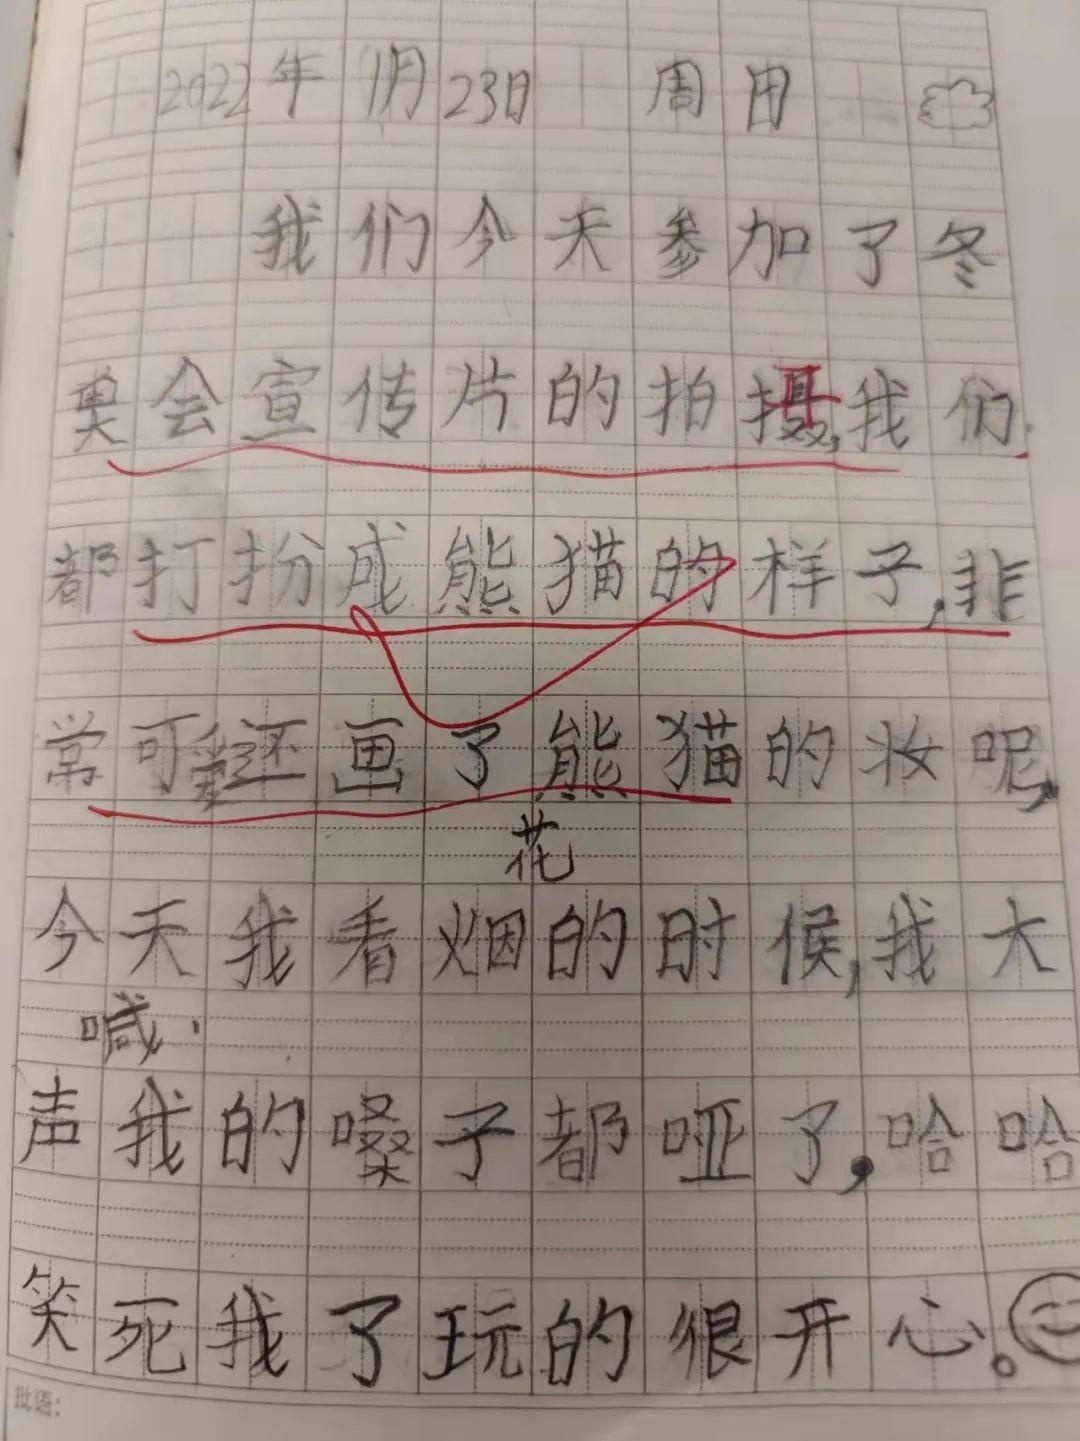 2022年1月23日 周日
我们今天参加了冬
奥会宣传片的拍摄,我们
都打扮成熊猫的样子,非
常可爱还画了熊猫的妆呢,
花
今天我看烟的时候,我大
喊
声我的嗓子都哑了,哈哈
笑死我了玩的很开心。
批语: